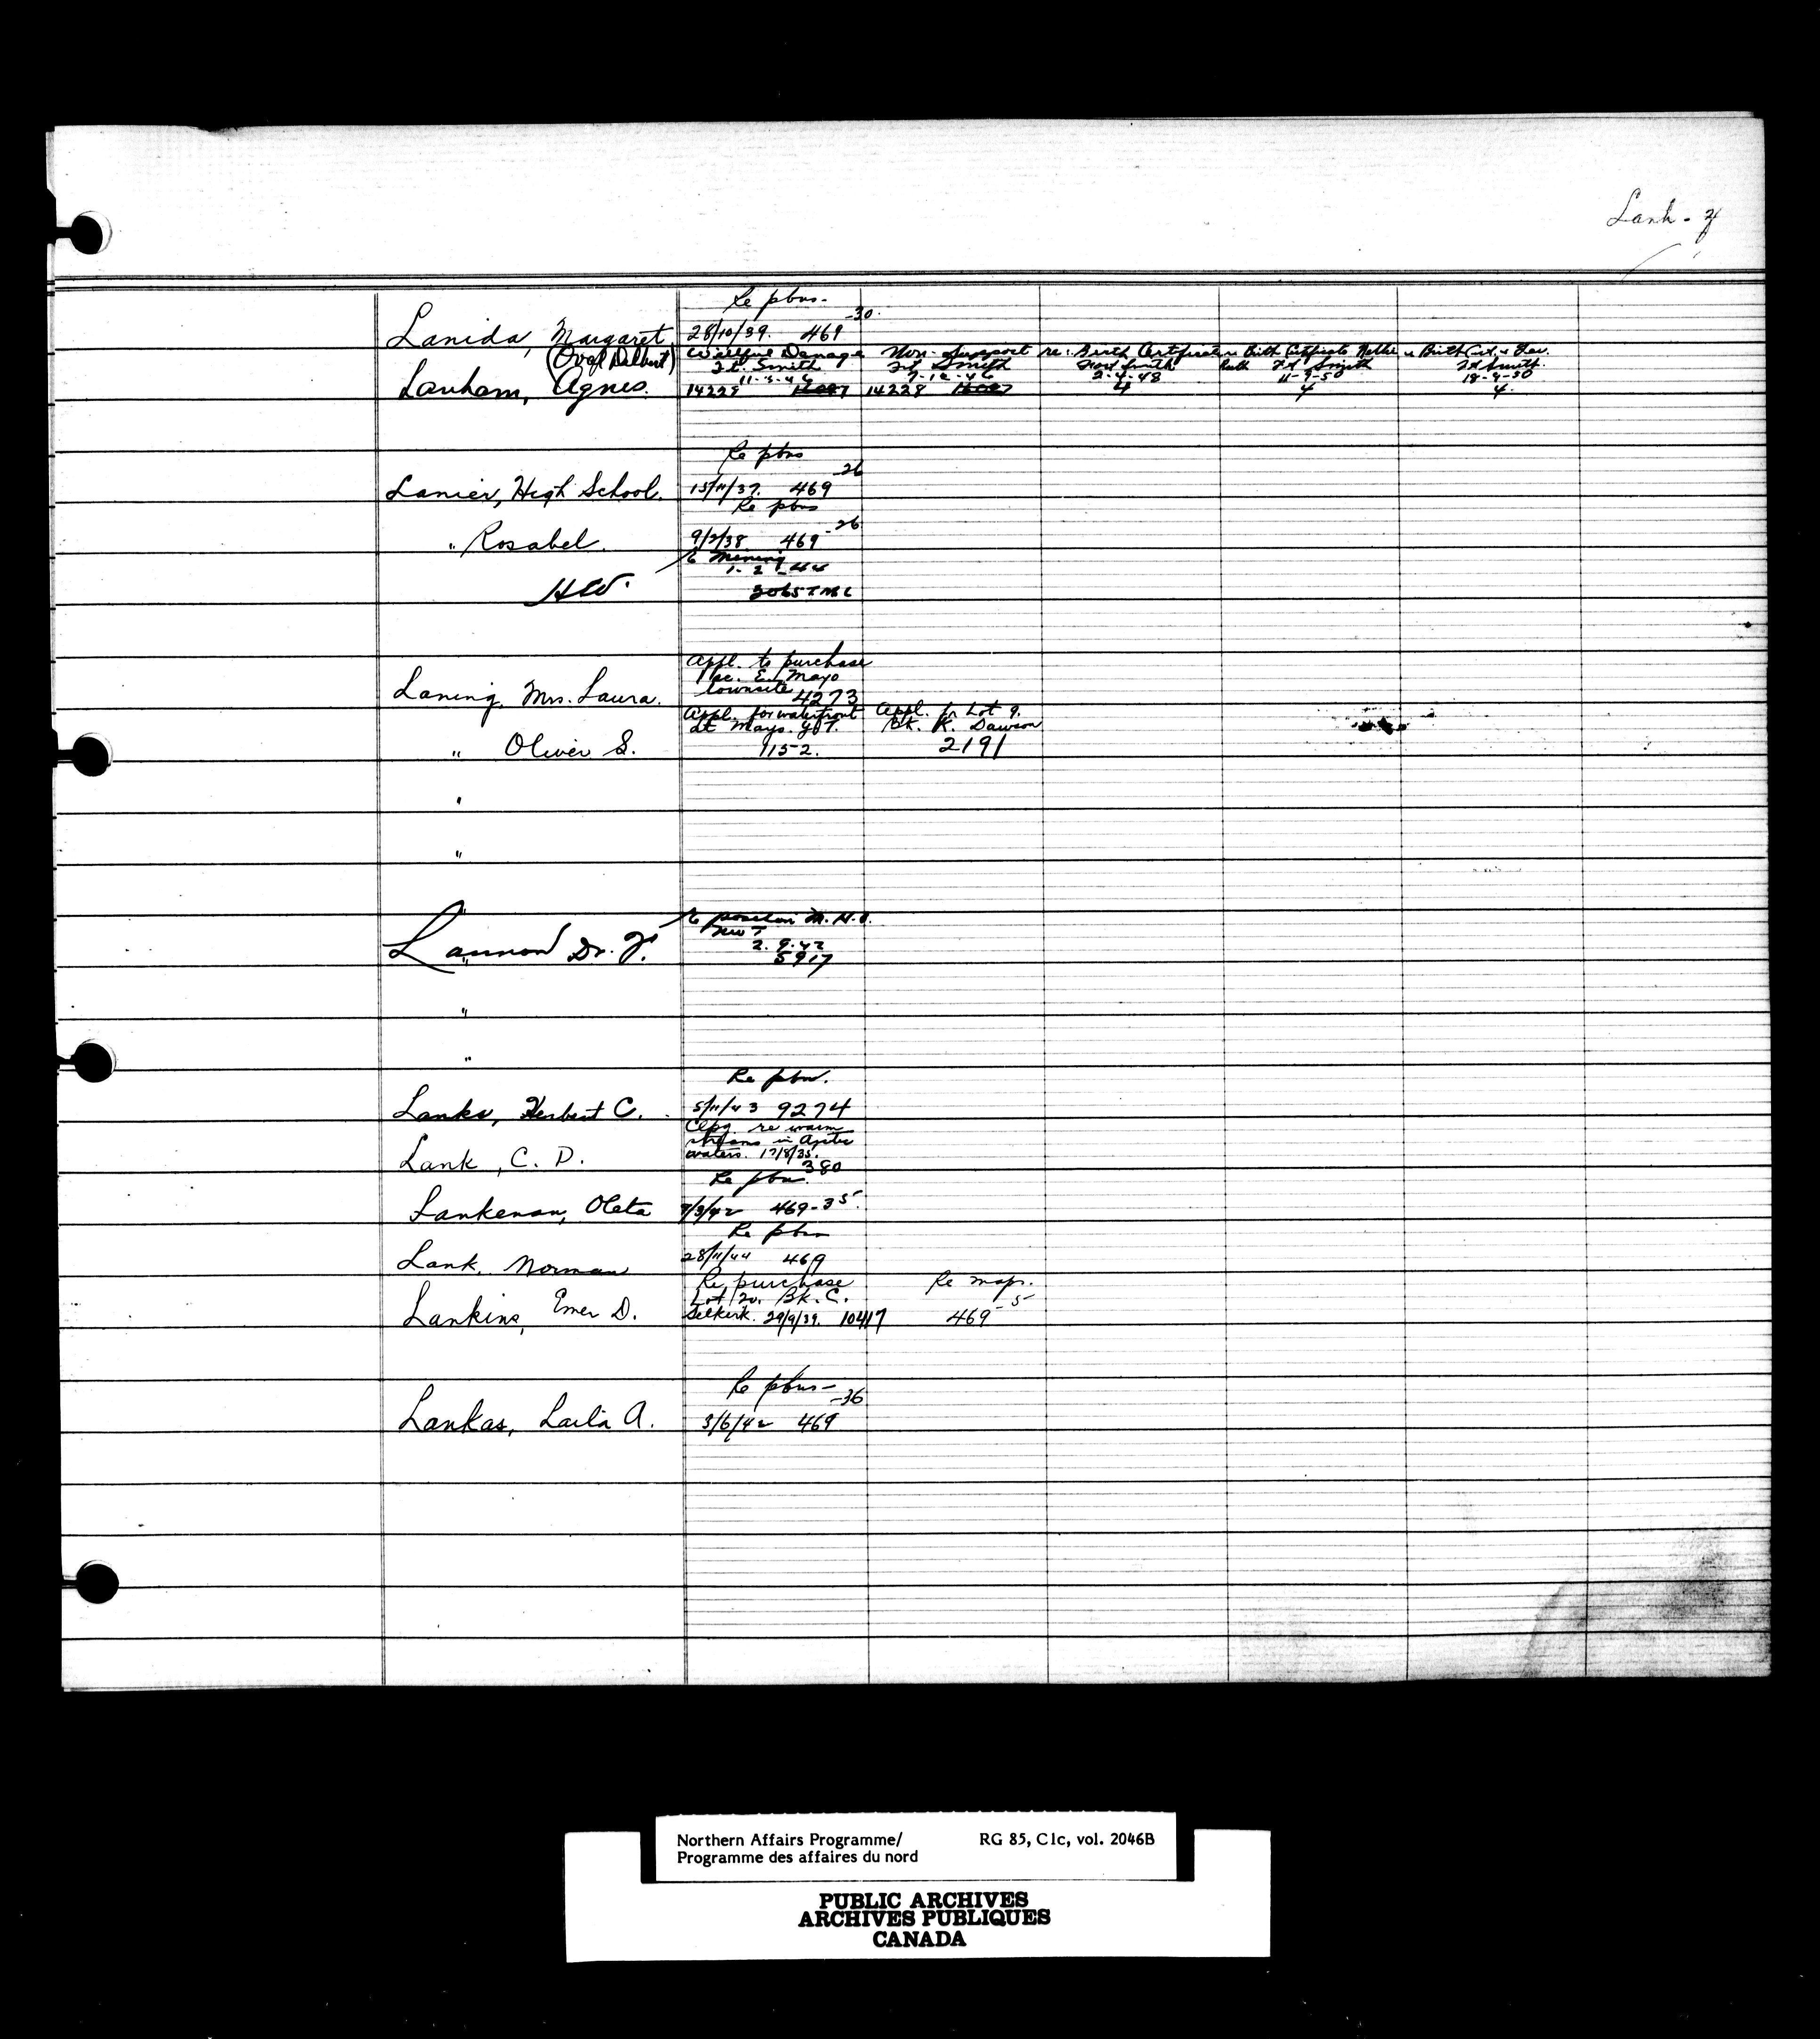 Lank - z
Lanida, Margaret
Re pbns-
28/10/39. 469 -30.
(Oval Delbert)
Lanham, Agnes.
Willful Damage
Ft. Smith
11-3-46
14228
Non-Support
Ft Smith
7-12-46
14228
re: Birth Certificate
Fort Smith
2-4-48
4
Birth Certificate Nellie
Ruth Ft Smith
11-9-50
4
Birth Cert.
Ft Smith.
18-9-50
4.
Lanier, High School.
Re pbns
15/11/37. 469 -26
" Rosabel.
Re pbns
9/2/38 469 -26
HW.
Re Mining
1-2-44
Laning, Mrs. Laura.
Appl. to purchase
1 ac. E. Mayo
townsite 4273
" Oliver S.
Appl. for waterfront
Lt Mayo. Y.T.
1152.
Appl. for Lot 9.
Bk. K. Dawson
2191
"
"
"
Lannon Dr. F.
Re position M.H.O.
NWT
2.9.42
5917
"
"
Lanks, Herbert C.
Re pbn.
5/11/43 9274
Lank, C. D.
Clpg. re warm
streams in Arctic
waters. 17/8/35.
380
Lankenan, Oleta
Re pbn.
7/3/42 469-35.
Lank, Norman
Re pbn
28/11/44 469
Lankins, Emer D.
Re purchase
Lot 20. Bk. C.
Selkirk. 29/9/39. 10417
Re maps.
469-5
Lankas, Laila A.
Re pbns-
3/6/42 469 -36
Northern Affairs Programme/
Programme des affaires du nord
RG 85, C1c, vol. 2046B
PUBLIC ARCHIVES
ARCHIVES PUBLIQUES
CANADA